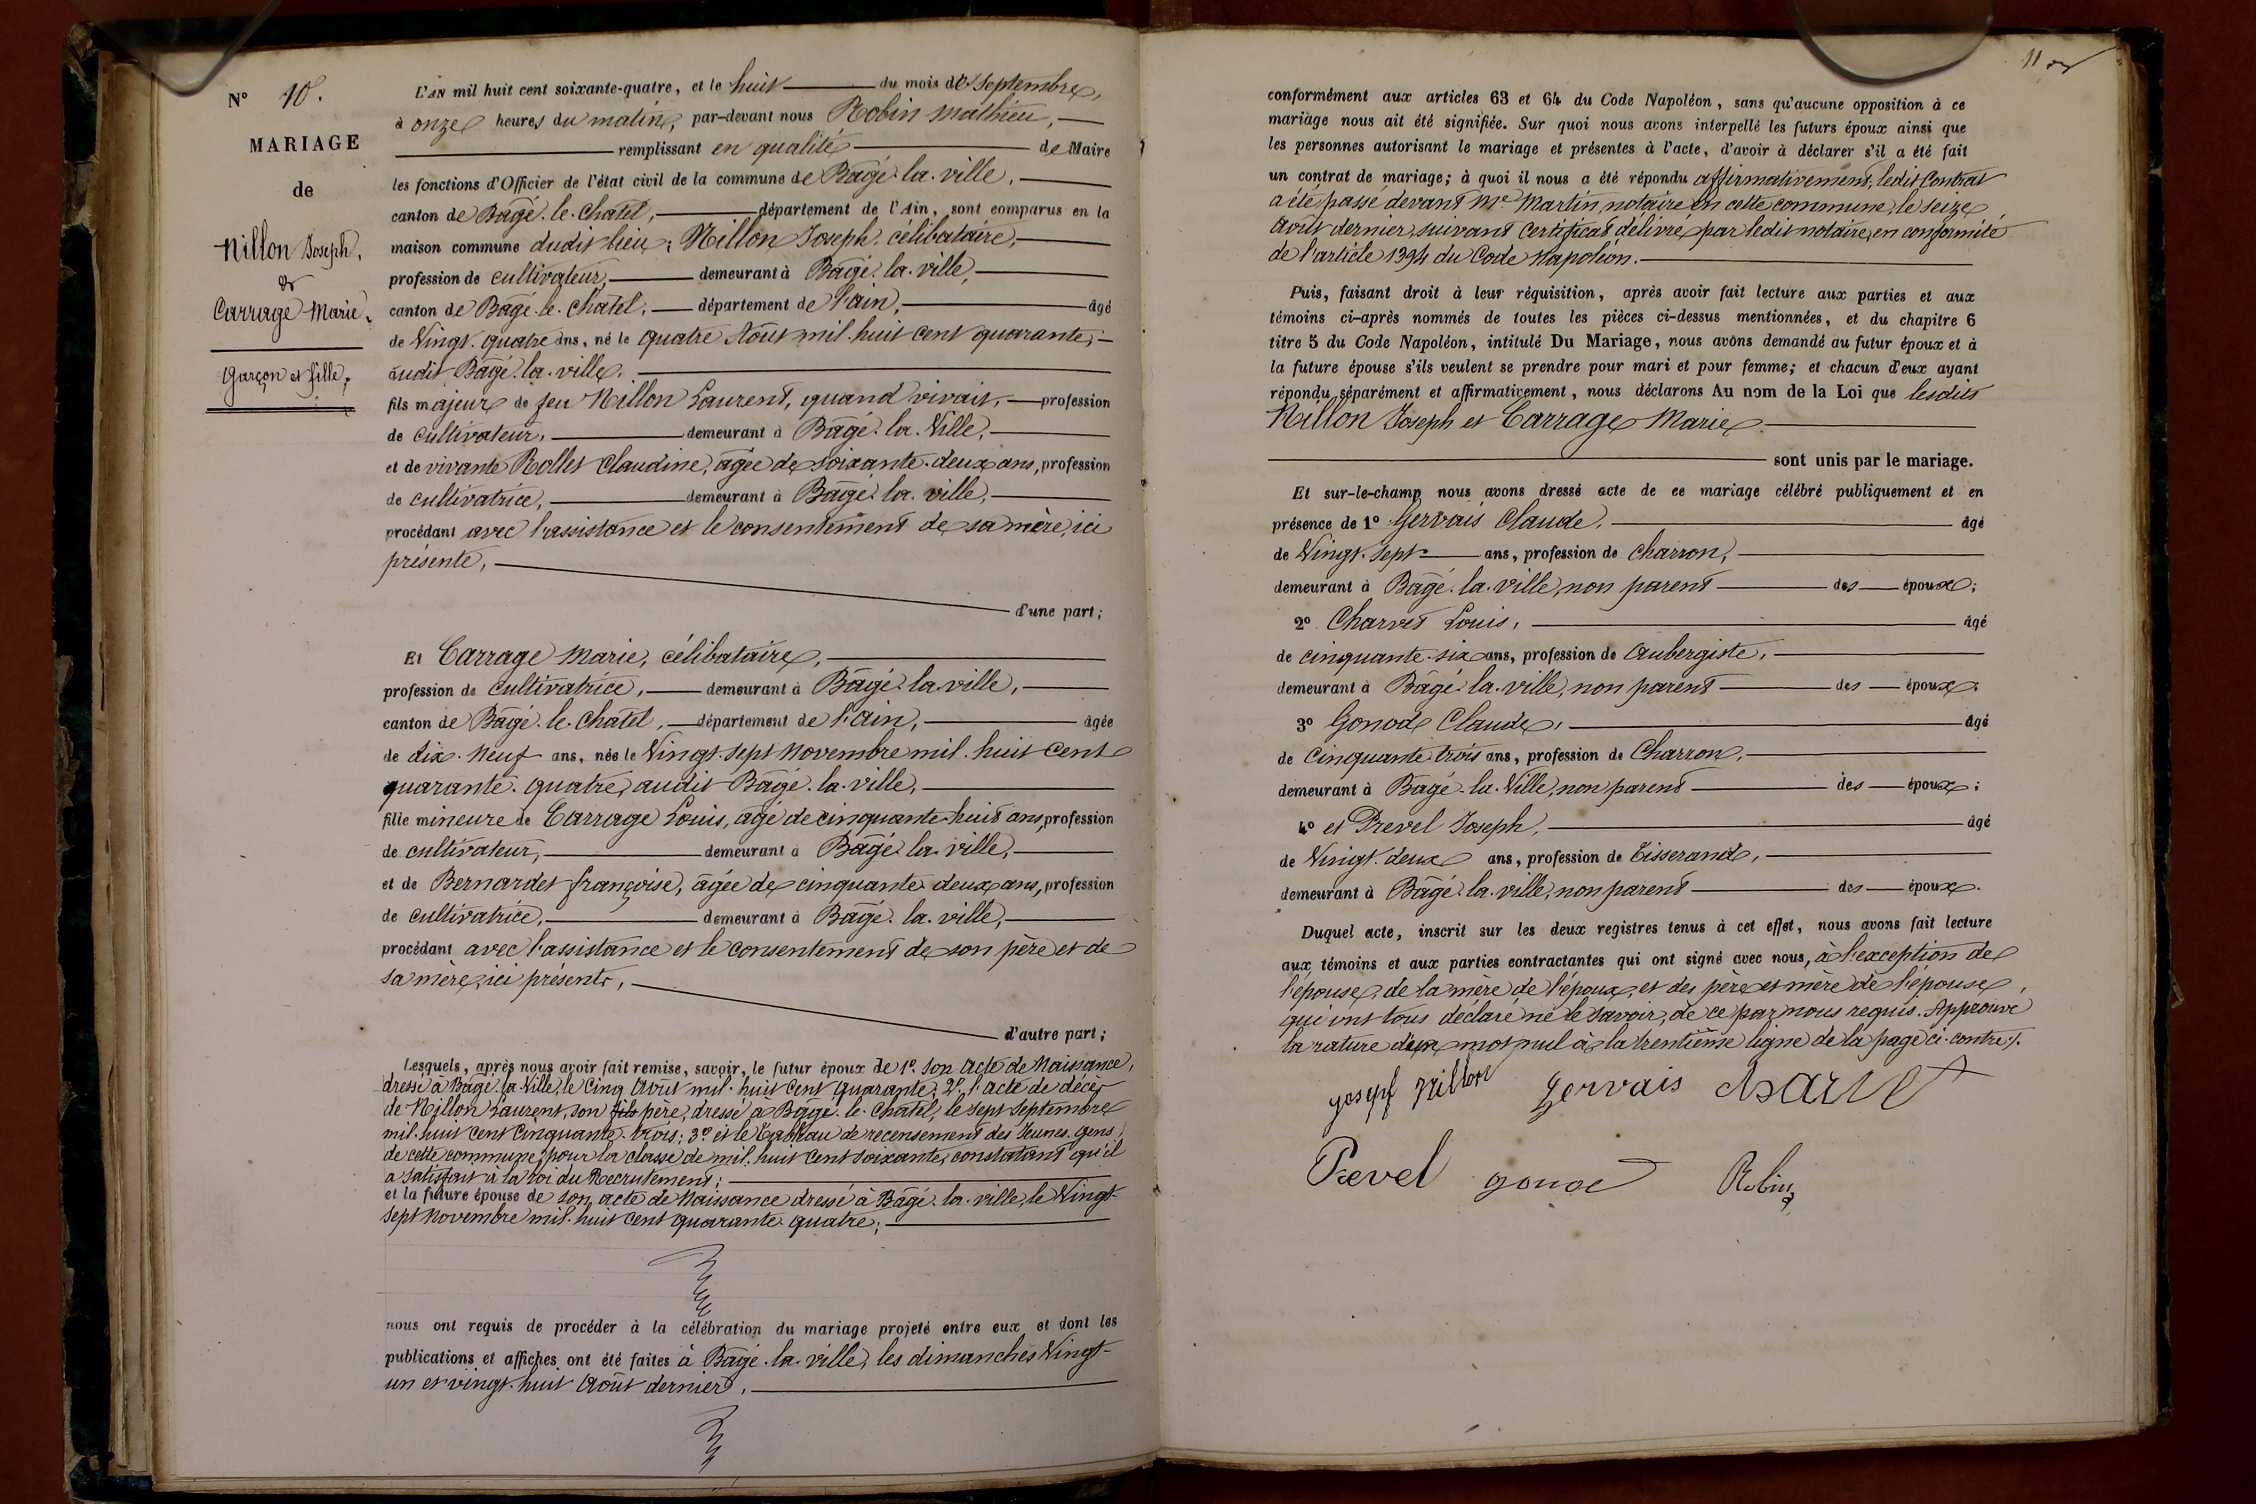 N° 10.
MARIAGE
de
Nillon Joseph,
&
Carrage Marie,
Garçon et fille.
L'AN mil huit cent soixante-quatre, et le huit du mois de Septembre,
à onze heures du matin, par-devant nous Robin Mathieu,
remplissant en qualité de Maire
les fonctions d'Officier de l'état civil de la commune de Bâgé-la-ville,
canton de Bâgé-le-Chatel, département de l'Ain, sont comparus en la
maison commune dudit lieu; Nillon Joseph, célibataire,
profession de cultivateur, demeurant à Bâgé-la-ville,
canton de Bâgé-le-Chatel, département de l'ain, âgé
de Vingt-quatre ans, né le quatre Août mil-huit cent quarante,
audit Bâgé-la-ville.
fils majeur de feu Nillon Laurent, quand vivait, profession
de cultivateur, demeurant à Bâgé-la-Ville,
et de vivante Rollet Claudine, âgée de soixante-deux ans, profession
de cultivatrice, demeurant à Bâgé-la-ville,
procédant avec l'assistance et le consentement de sa mère, ici
présente,
d'une part;
Et Carrage Marie, célibataire,
profession de cultivatrice, demeurant à Bâgé-la-ville,
canton de Bâgé-le-Chatel, département de l'Ain, âgée
de dix-neuf ans, née le Vingt-sept Novembre mil-huit cent
quarante-quatre, audit Bâgé-la-ville,
fille mineure de Carrage Louis, âgé de cinquante-huit ans, profession
de cultivateur, demeurant à Bâgé-la-ville,
et de Bernardet françoise, âgée de cinquante-deux ans, profession
de cultivatrice, demeurant à Bâgé-la-ville,
procédant avec l'assistance et le consentement de son père et de
sa mère, ici présents,
d'autre part;
Lesquels, après nous avoir fait remise, savoir, le futur époux de 1° son acte de Naissance,
dressé à Bâgé-la-Ville, le cinq Août mil-huit cent quarante; 2° l'acte de décès
de Nillon Laurent, son fils père, dressé à Bâgé-le-Chatel, le sept Septembre
mil-huit cent cinquante-trois; 3° et le Tableau de recensement des Jeunes-gens
de cette commune, pour la classe de mil-huit cent soixante, constatant qu'il
a satisfait à la loi du Recrutement;
et la future épouse de son acte de Naissance dressé à Bâgé-la-ville, le Vingt-
sept Novembre mil-huit cent quarante-quatre;
nous ont requis de procéder à la célébration du mariage projeté entre eux et dont les
publications et affiches ont été faites à Bâgé-la-ville, les dimanches Vingt-
un et vingt-huit Août dernier,
11
conformément aux articles 63 et 64 du Code Napoléon, sans qu'aucune opposition à ce
mariage nous ait été signifiée. Sur quoi nous avons interpellé les futurs époux ainsi que
les personnes autorisant le mariage et présentes à l'acte, d'avoir à déclarer s'il a été fait
un contrat de mariage; à quoi il nous a été répondu affirmativement, ledit Contrat
a été passé devant Me Martin, notaire en cette commune, le seize
Août dernier, suivant certificat délivré par ledit notaire, en conformité
de l'article 1394 du Code Napoléon.
Puis, faisant droit à leur réquisition, après avoir fait lecture aux parties et aux
témoins ci-après nommés de toutes les pièces ci-dessus mentionnées, et du chapitre 6
titre 5 du Code Napoléon, intitulé Du Mariage, nous avons demandé au futur époux et à
la future épouse s'ils veulent se prendre pour mari et pour femme; et chacun d'eux ayant
répondu séparément et affirmativement, nous déclarons Au nom de la Loi que lesdits
Nillon Joseph et Carrage Marie
sont unis par le mariage.
Et sur-le-champ nous avons dressé acte de ce mariage célébré publiquement et en
présence de 1° Gervais Claude, âgé
de Vingt-sept ans, profession de charron,
demeurant à Bâgé-la-ville, non parent des époux;
2° Charvet Louis, âgé
de cinquante-six ans, profession de Aubergiste,
demeurant à Bâgé-la-ville, non parent des époux.
3° Gonod Claude, âgé
de Cinquante-trois ans, profession de Charron,
demeurant à Bâgé-la-Ville, non parent des époux;
4° et Prevel Joseph, âgé
de Vingt-deux ans, profession de Tisserand,
demeurant à Bâgé-la-ville, non parent des époux.
Duquel acte, inscrit sur les deux registres tenus à cet effet, nous avons fait lecture
aux témoins et aux parties contractantes qui ont signé avec nous, à l'exception de
l'épouse, de la mère de l'époux, et des père et mère de l'épouse,
qui ont tous déclaré ne le savoir, de ce par nous requis. Approuvé
la rature d'un mot nul à la trentième ligne de la page ci-contre.
joseph Nillon Gervais Charvet
Prevel gonod Robin